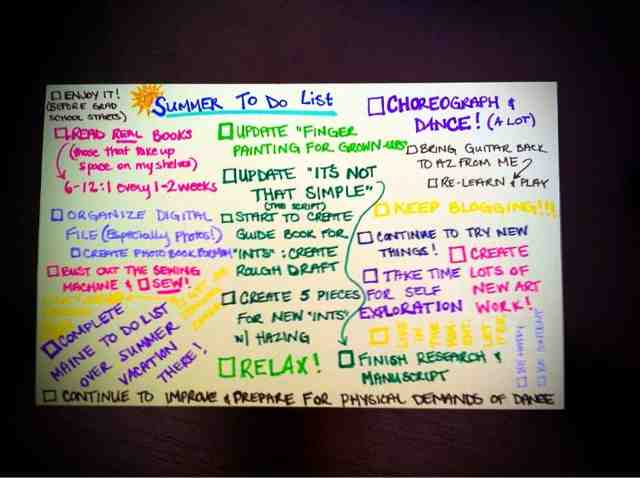 ☐ ENJOY IT!
(BEFORE GRAD
SCHOOL STARTS)
SUMMER TO DO LIST
☐ READ REAL BOOKS
(those that take up
space on my shelves)
6-12 : 1 every 1-2 weeks
☐ ORGANIZE DIGITAL
FILE (Especially Photos!)
☐ CREATE PHOTO BOOK FOR
☐ BUST OUT THE SEWING
MACHINE & ☐ SEW!
☐ COMPLETE
MAINE TO DO LIST
OVER SUMMER
VACATION
THERE!
☐ UPDATE "FINGER
PAINTING FOR GROWN-UPS"
☐ UPDATE "IT'S NOT
THAT SIMPLE"
(THE SCRIPT)
☐ START TO CREATE
GUIDE BOOK FOR
"INTS" : CREATE
ROUGH DRAFT
☐ CREATE 5 PIECES
FOR NEW "INTS"
W/ HAZING
☐ RELAX!
☐ CHOREOGRAPH &
DANCE! (A LOT)
☐ BRING GUITAR BACK
TO AZ FROM ME
☐ RE-LEARN & PLAY
☐ KEEP BLOGGING!!!
☐ CONTINUE TO TRY NEW
THINGS!
☐ CREATE
LOTS OF
NEW ART
WORK!
☐ TAKE TIME
FOR SELF
EXPLORATION
☐ FINISH RESEARCH &
MANUSCRIPT
☐ BE HAPPY
☐ BE CONTENT
☐ CONTINUE TO IMPROVE & PREPARE FOR PHYSICAL DEMANDS OF DANCE